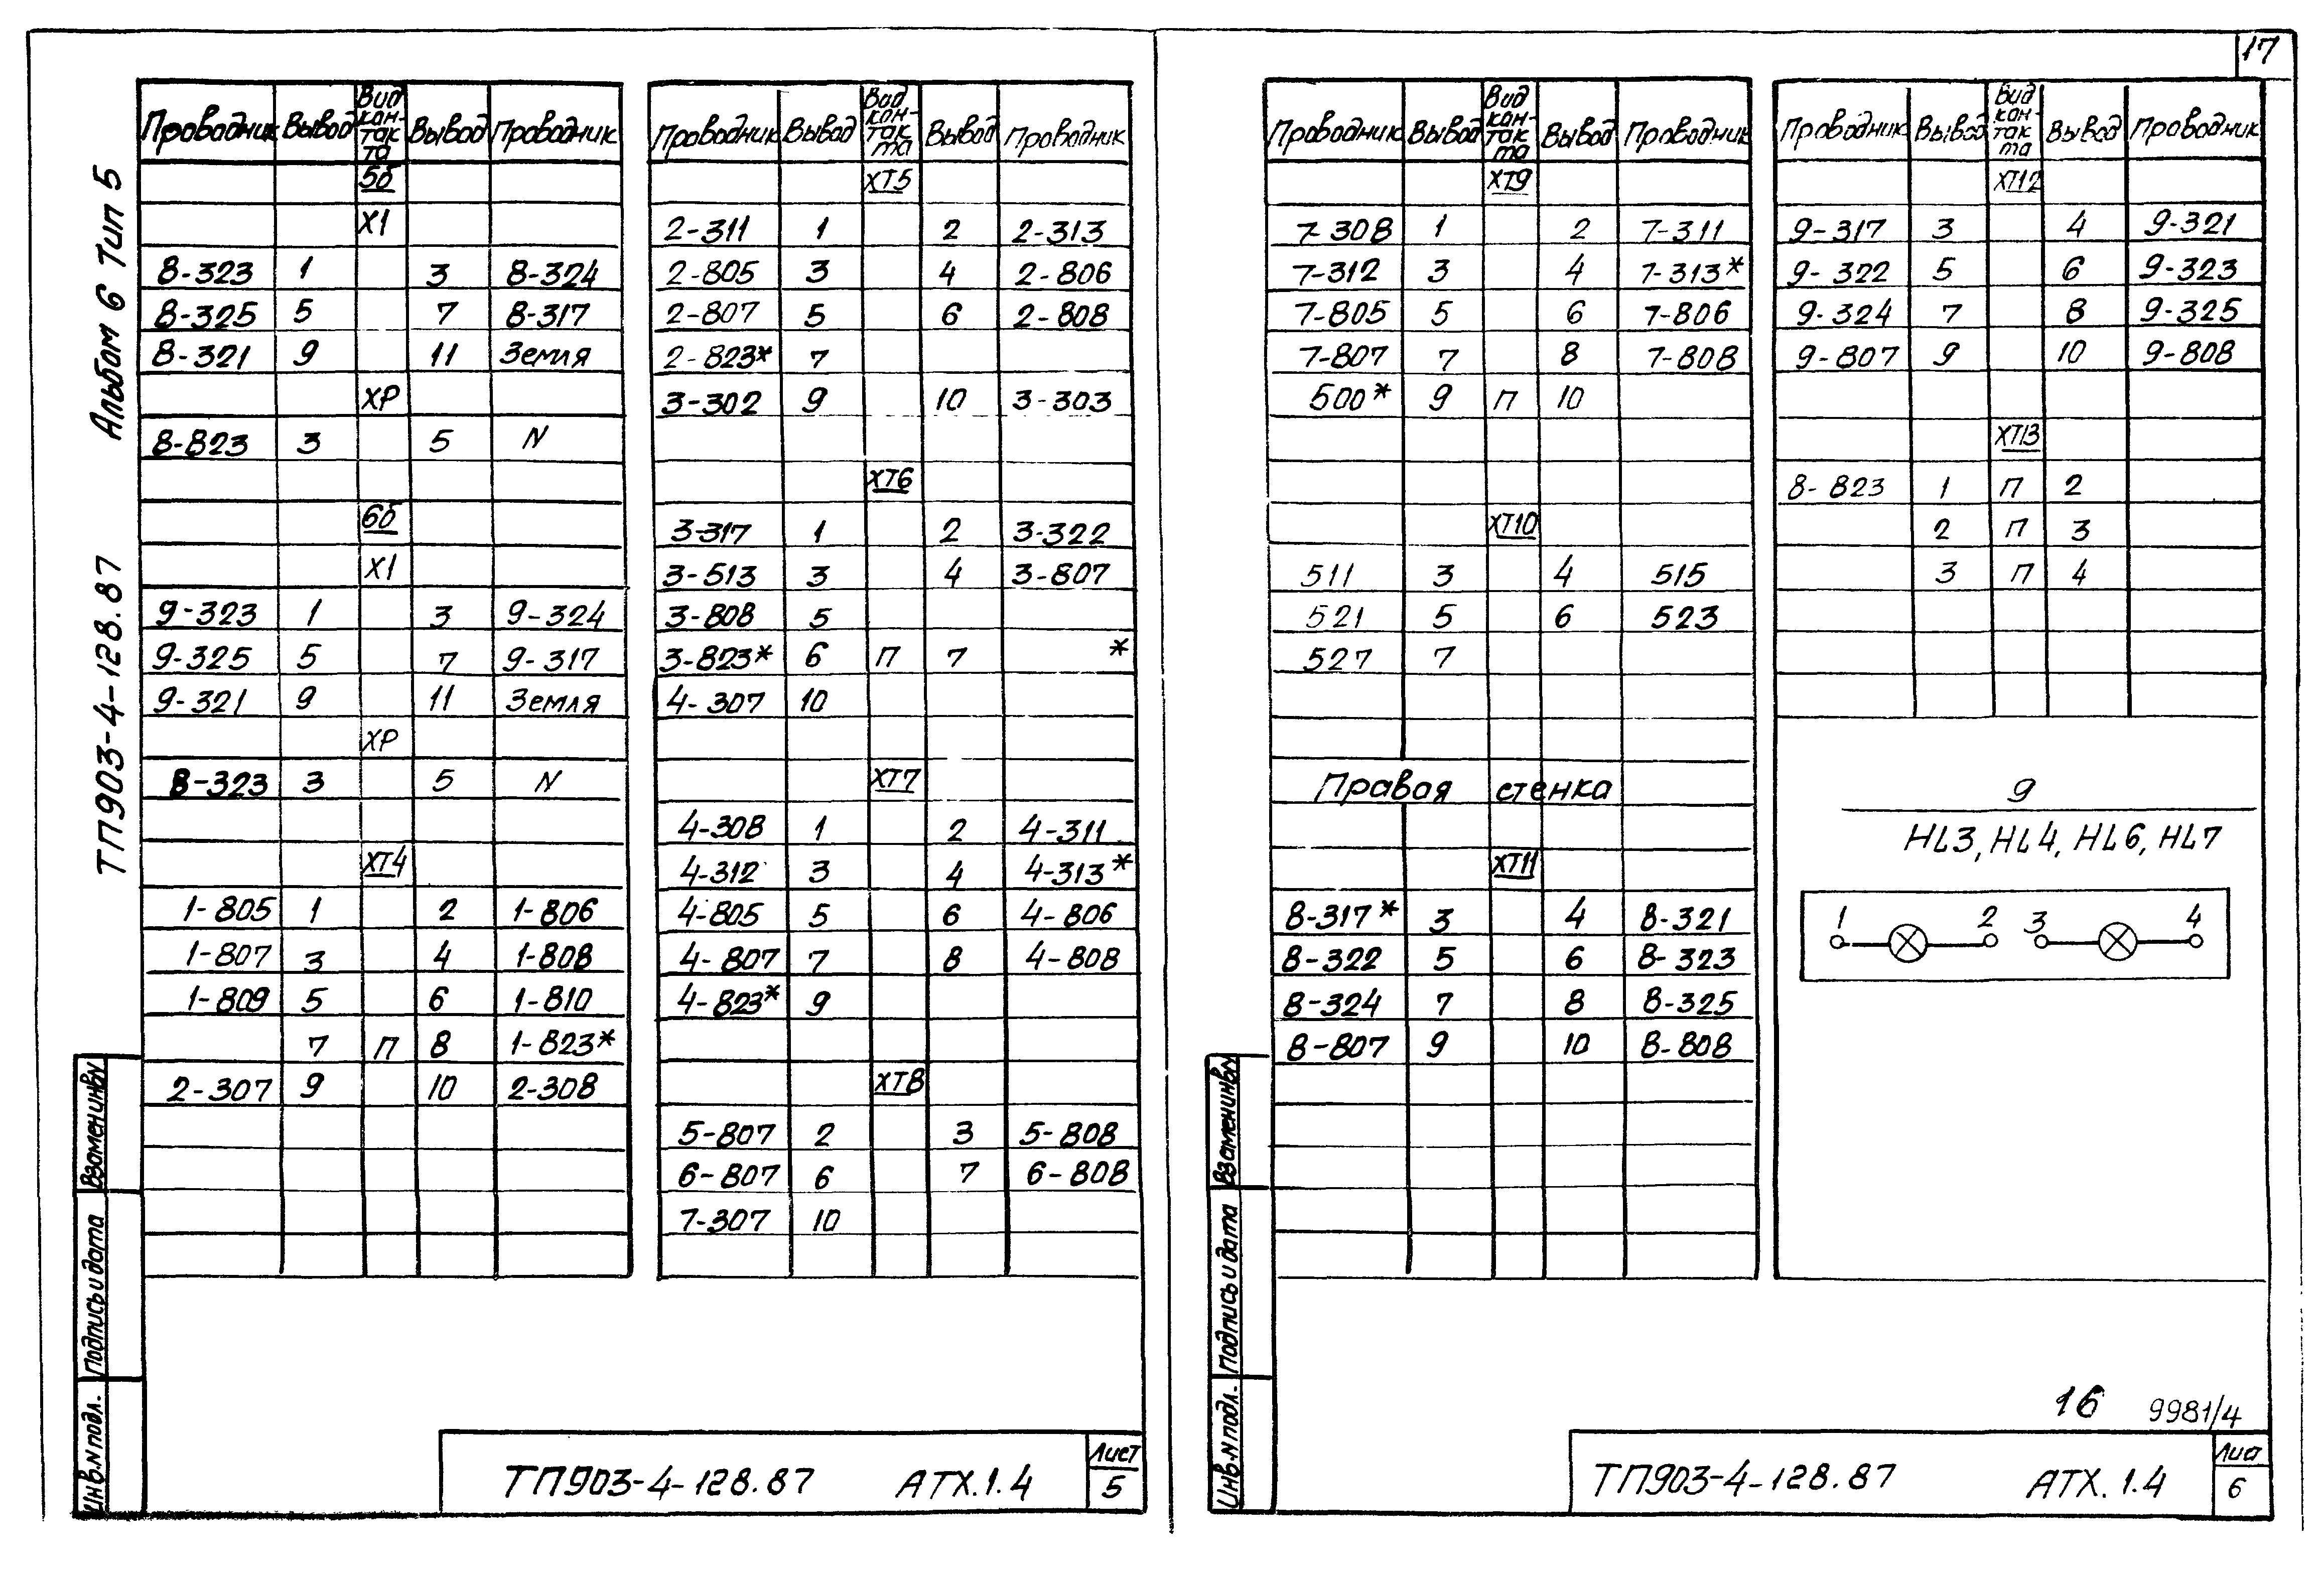 17
Альбом 6 Тип 5
ТП903-4-128.87
Проводник Вывод Вид кон-так та Вывод Проводник
5б
X1
8-323 1 3 8-324
8-325 5 7 8-317
8-321 9 11 Земля
XP
8-823 3 5 N
6б
X1
9-323 1 3 9-324
9-325 5 7 9-317
9-321 9 11 Земля
XP
8-323 3 5 N
XT4
1-805 1 2 1-806
1-807 3 4 1-808
1-809 5 6 1-810
7 П 8 1-823*
2-307 9 10 2-308
Проводник Вывод Вид кон-так та Вывод Проводник
XT5
2-311 1 2 2-313
2-805 3 4 2-806
2-807 5 6 2-808
2-823* 7
3-302 9 10 3-303
XT6
3-317 1 2 3-322
3-513 3 4 3-807
3-808 5
3-823* 6 П 7 *
4-307 10
XT7
4-308 1 2 4-311
4-312 3 4 4-313*
4-805 5 6 4-806
4-807 7 8 4-808
4-823* 9
XT8
5-807 2 3 5-808
6-807 6 7 6-808
7-307 10
Взамен инв№
Подпись и дата
Инв.№ подл.
ТП903-4-128.87 АТХ.1.4
Лист
5
Проводник Вывод Вид кон-так та Вывод Проводник
XT9
7-308 1 2 7-311
7-312 3 4 7-313*
7-805 5 6 7-806
7-807 7 8 7-808
500* 9 П 10
XT10
511 3 4 515
521 5 6 523
527 7
Правая стенка
XT11
8-317* 3 4 8-321
8-322 5 6 8-323
8-324 7 8 8-325
8-807 9 10 8-808
Проводник Вывод Вид кон-так та Вывод Проводник
XT12
9-317 3 4 9-321
9-322 5 6 9-323
9-324 7 8 9-325
9-807 9 10 9-808
XT13
8-823 1 П 2
2 П 3
3 П 4
9
HL3, HL4, HL6, HL7
1 2 3 4
Взамен инв№
Подпись и дата
Инв.№ подл.
16 9981/4
ТП903-4-128.87 АТХ.1.4
Лист
6